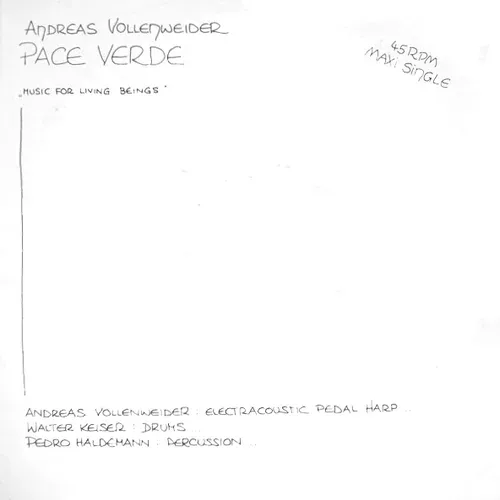 ANDREAS VOLLENWEIDER
PACE VERDE
45 RPM
MAXI SINGLE
"MUSIC FOR LIVING BEINGS"
ANDREAS VOLLENWEIDER : ELECTRACOUSTIC PEDAL HARP ..
WALTER KEISER : DRUMS ..
PEDRO HALDEMANN : PERCUSSION ..